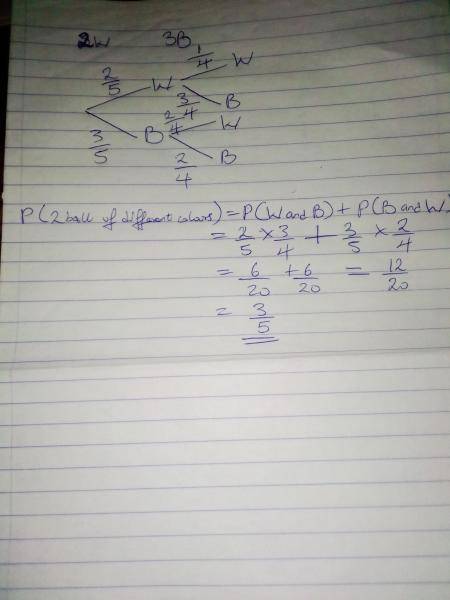 2W 3B
1/4 W
2/5 W
3/4 B
2/4 W
3/5 B
2/4 B
P(2 ball of different colours) = P(W and B) + P(B and W)
= 2/5 × 3/4 + 3/5 × 2/4
= 6/20 + 6/20 = 12/20
= 3/5